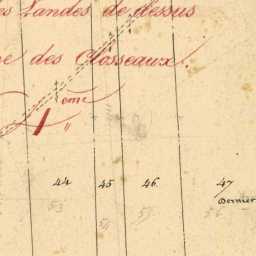 es Landes de dessus
e des Closseaux.
4 eme
44 45 46. 47
53 54 55 56
Dernier